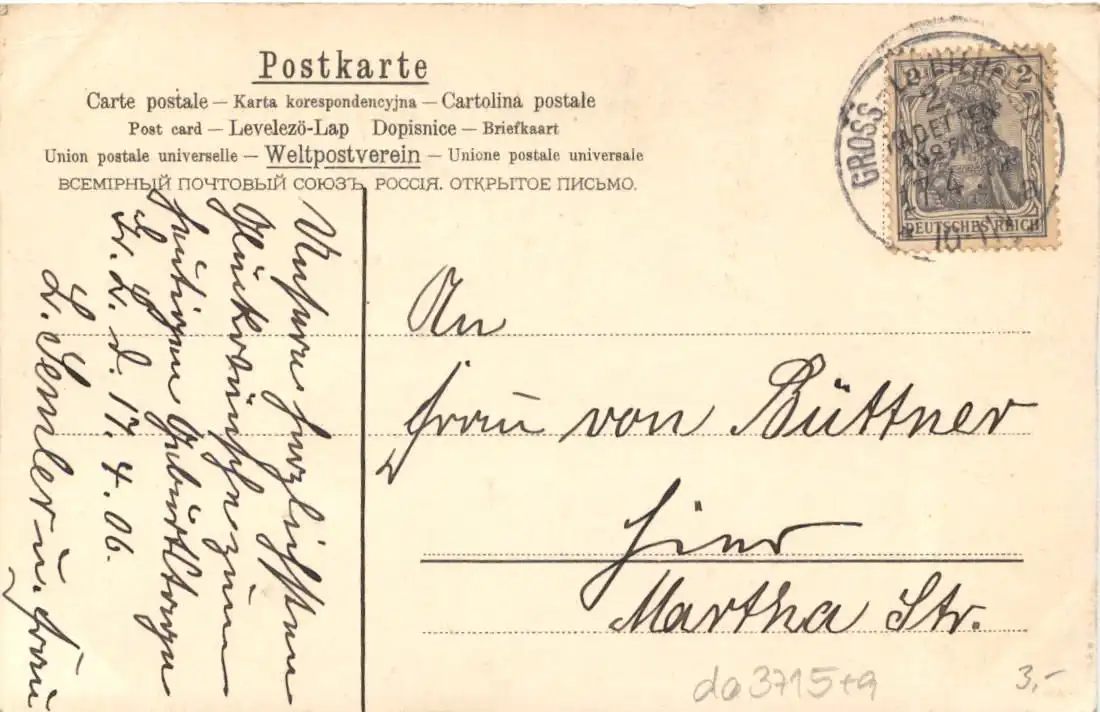 Postkarte
Carte postale — Karta korespondencyjna — Cartolina postale
Post card — Levelező-Lap Dopisnice — Briefkaart
Union postale universelle — Weltpostverein — Unione postale universale
ВСЕМІРНЫЙ ПОЧТОВЫЙ СОЮЗЪ. РОССІЯ. ОТКРЫТОЕ ПИСЬМО.
2 2
DEUTSCHES REICH
GROSS-LICHTERFELDE
2
KADETTEN
ANSTALT
17.4.
10-11V
Unsere herzlichsten
Glückwünsche zum
heutigen Geburtstage
Gr. L. d. 17. 4. 06.
L. Semler u. Frau
An
Frau von Büttner
Hier
Martha Str.
da3715+9
3,-